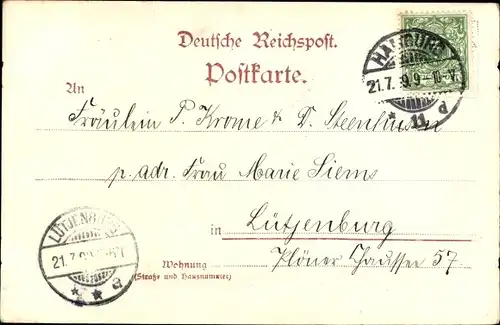 Deutsche Reichspost.
Postkarte.
HAMBURG
21.7.99. 9-10.V.
* 11 d
An
Fräulein P. Krome & D. Steenhusen
p. adr. Frau Marie Siems
in Lütjenburg
LÜTJENBURG
21.7.9
* * a
Wohnung Plöner Chaussee 57
(Straße und Hausnummer)